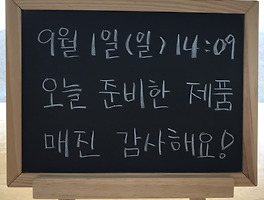 9월 1일(일) 14:09
오늘 준비한 제품
매진 감사해요!